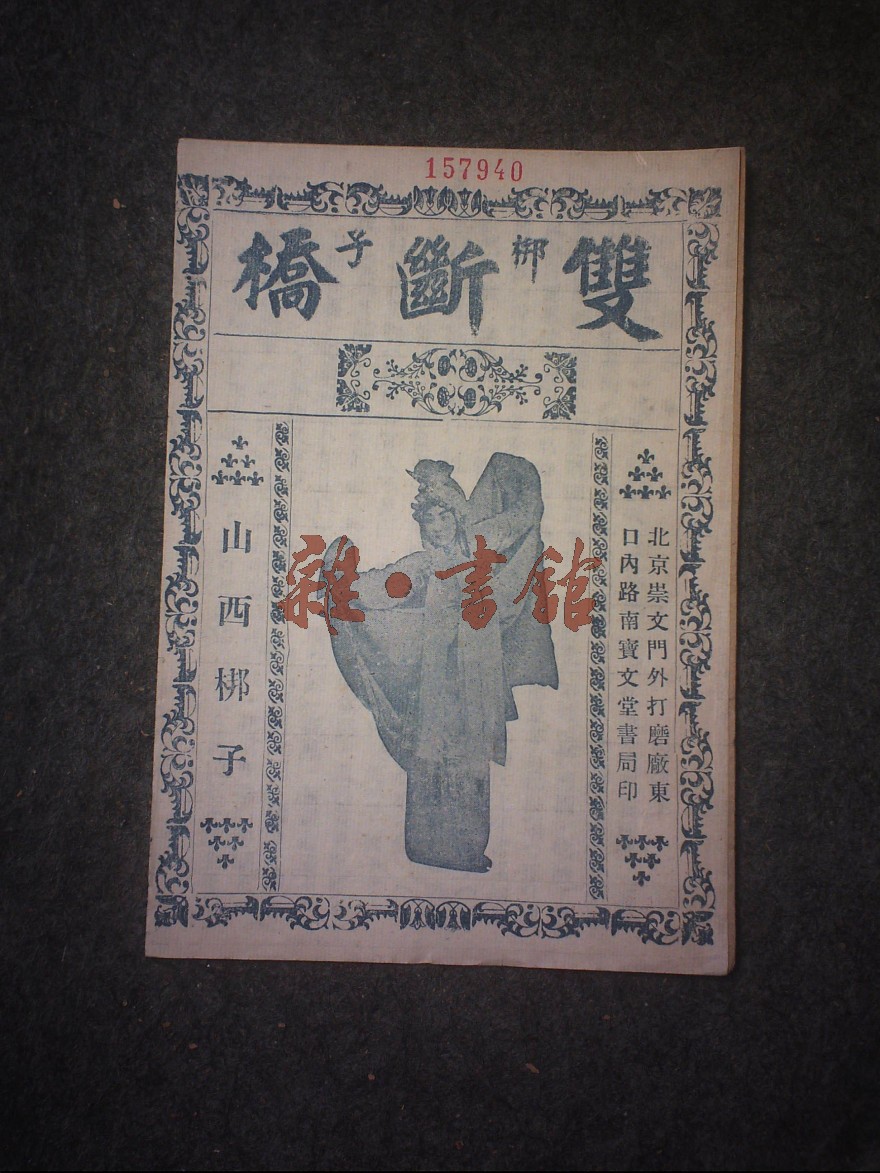 157940
雙斷橋
梆子
北京崇文門外打磨厰東
口內路南寶文堂書局印
山西梆子
雜·書館